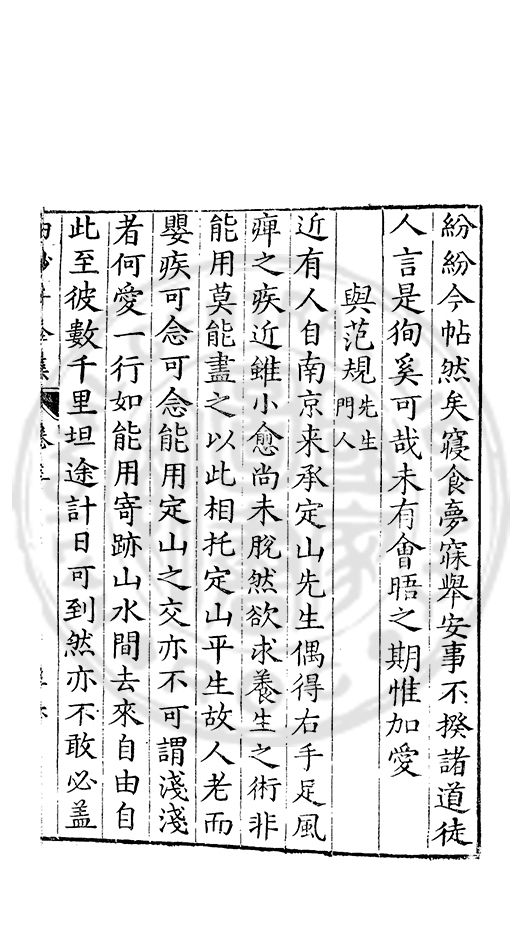 紛紛今帖然矣寢食夢寐舉安事不揆諸道徒
人言是徇奚可哉未有會晤之期惟加愛
與范規先生門人
近有人自南京来承定山先生偶得右手足風
痺之疾近雖小愈尚未脫然欲求養生之術非
能用莫能盡之以此相托定山平生故人老而
嬰疾可念可念能用定山之交亦不可謂淺淺
者何愛一行如能用寄跡山水間去來自由自
此至彼數千里坦途計日可到然亦不敢必盖